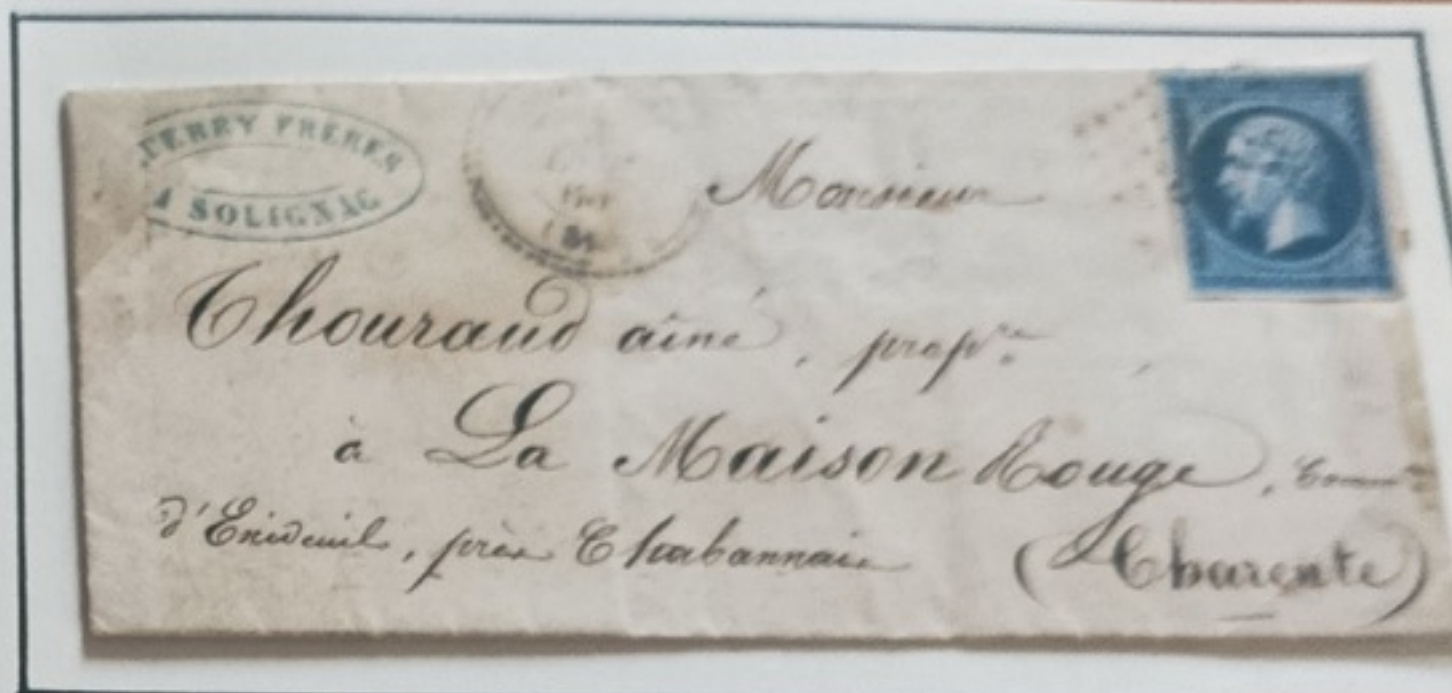 FERRY FRERES
A SOLIGNAC
Monsieur
Thouraud aîné, propre
à La Maison Rouge, Comm
d'Exideuil, près Chabannais
(Charente)